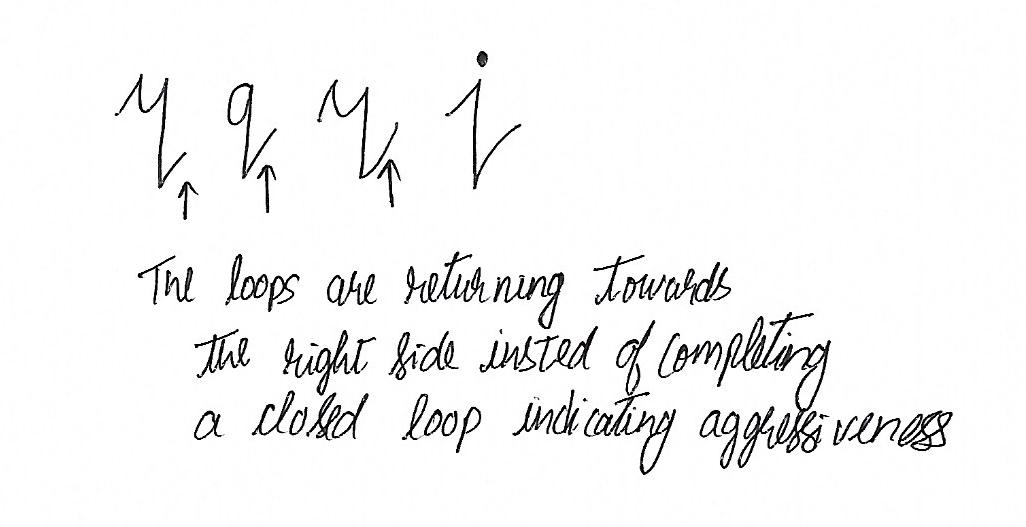 y q y j
The loops are returning towards
the right side insted of completing
a closed loop indicating aggressiveness